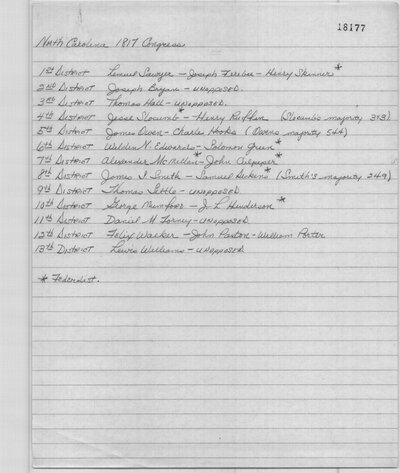 18177
North Carolina 1817 Congress
1st District Lemuel Sawyer - Joseph Ferebee - Henry Skinner*
2nd District Joseph Bryan - unopposed.
3rd District Thomas Hall - unopposed.
4th District Jesse Slocumb* - Henry Ruffin (Slocumbs majority 313)
5th District James Owen - Charles Hooks (Owens majority 544)
6th District Weldon N. Edwards - Solomon Green*
7th District Alexander McMillan* - John Culpeper*
8th District James S. Smith - Samuel Dickens* (Smith's majority 249)
9th District Thomas Settle - unopposed
10th District George Mumford - J. L. Henderson*
11th District Daniel M. Forney - unopposed
12th District Felix Walker - John Paxton - William Porter
13th District Lewis Williams - unopposed
* Federalist.